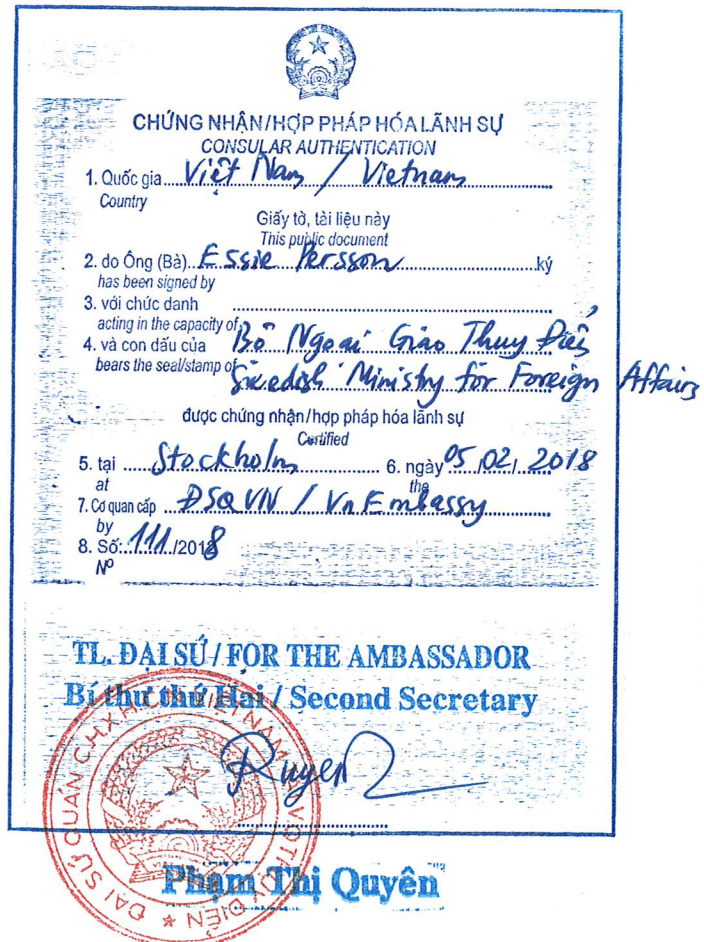 CHỨNG NHẬN/HỢP PHÁP HÓA LÃNH SỰ
CONSULAR AUTHENTICATION
1. Quốc gia.....Việt Nam / Vietnam
Country
Giấy tờ, tài liệu này
This public document
2. do Ông (Bà)..Essie Persson..........ký
has been signed by
3. với chức danh ..........
acting in the capacity of
4. và con dấu của Bộ Ngoại Giao Thuỵ Điển
bears the seal/stamp of Swedish Ministry for Foreign Affairs
được chứng nhận/hợp pháp hóa lãnh sự
Certified
5. tại .....Stockholm.......... 6. ngày 05/02/2018
at the
7. Cơ quan cấp ĐSQVN / Vn Embassy
by
8. Số:..111../2018
Nº
TL. ĐẠI SỨ / FOR THE AMBASSADOR
Bí thư thứ Hai / Second Secretary
Quyen
Phạm Thị Quyên
ĐẠI SỨ QUÁN CHXHCN VIỆT NAM TẠI V.Q THỤY ĐIỂN